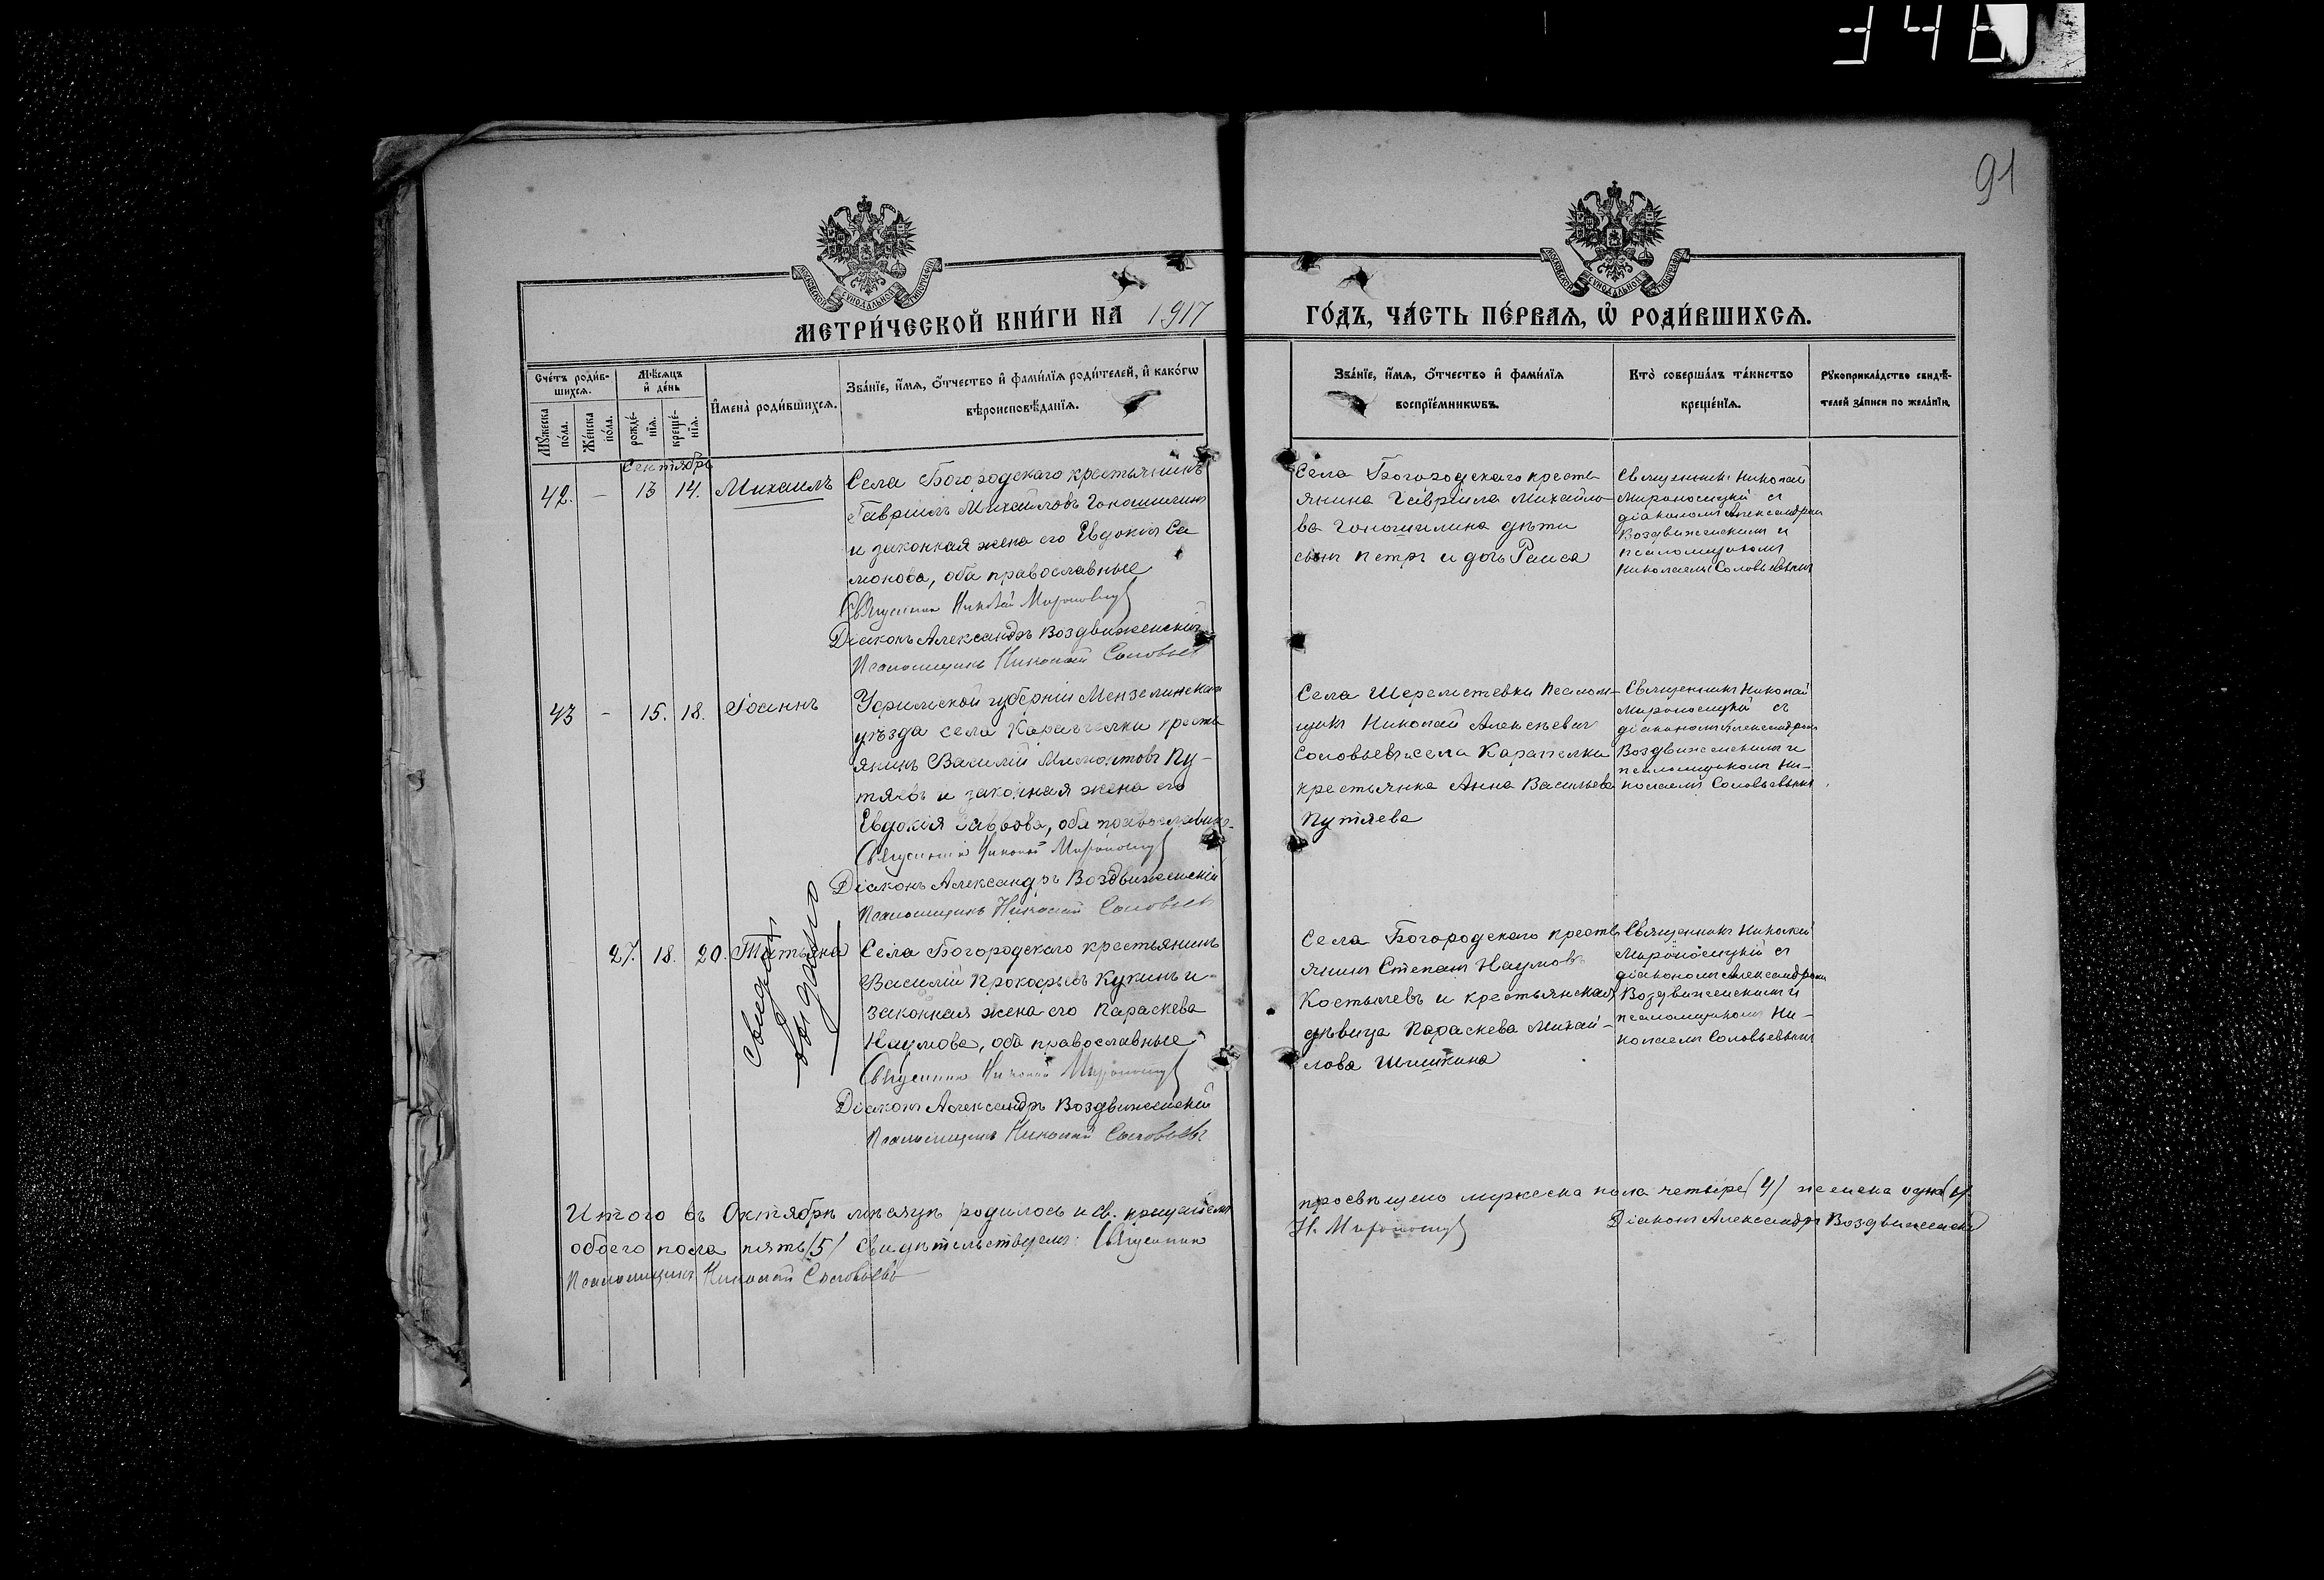 346
91
МОСКОВСКОЙ СѴНОДАЛЬНОЙ ТИПОГРАФІИ
МОСКОВСКОЙ СѴНОДАЛЬНОЙ ТИПОГРАФІИ
МЕТРИ́ЧЕСКОЙ КНИ́ГИ НА 1917
ГО́ДЪ, ЧА́СТЬ ПЕ́РВАѦ, Ѽ РОДИ́ВШИХСѦ.
Сче́тъ роди́в-
шихсѧ.
Мꙋ́жеска
по́ла.
Же́нска
по́ла.
Мѣ́сѧцъ
и҆ де́нь
рожде́-
нїѧ.
креще́-
нїѧ.
И҆мена̀ роди́вшихсѧ.
Зва́нїе, и҆́мѧ, ѻ҆́тчество и҆ фами́лїѧ роди́телей, и҆ како́гѡ
вѣроисповѣ́данїѧ.
Зва́нїе, и҆́мѧ, ѻ҆́тчество и҆ фами́лїѧ
воспрїе́мникѡвъ.
Кто̀ соверша́лъ та́инство
креще́нїѧ.
Рꙋкоприкла́дство свидѣ́-
телей за́писи по жела́нїю.
Сентябрь
42. – 13 14. Михаилъ
Села Богородскаго крестьянинъ
Гавріилъ Михайловъ
и законная жена его Евдокія Са
монова, оба православные
Священникъ Николай Мироносицкій
Діаконъ Александръ Воздвиженскій
Псаломщикъ Николай Соловьев
Села Богородскаго кресть
янина Гавріила Михайло-
ва дѣти
сынъ Петръ и дочь Раиса
Священникъ Николай
Мироносицкій съ
діакономъ Александромъ
Воздвиженскимъ и
псаломщикомъ
Николаемъ Соловьевымъ
43 – 15. 18. Іоаннъ
Уфимской губерніи Мензелинскаго
уѣзда села кресть
янинъ Василій Мамонтовъ Пу-
тяевъ и законная жена его
Евдокія оба православные
Священникъ Николай Мироносицкій
Діаконъ Александръ Воздвиженскій
Псаломщикъ Николай Соловьев
Села Шереметевки псалом-
щикъ Николай Алексѣевичъ
Соловьевъ и села
крестьянка Анна Васильева
Путяева
Священникъ Николай
Мироносицкій съ
діакономъ Александромъ
Воздвиженскимъ и
псаломщикомъ Ни-
колаемъ Соловьевымъ
27. 18. 20. Татьяна
выдано
Села Богородскаго крестьянинъ
Василій Прокофьевъ Кукинъ и
законная жена его Параскева
Наумова, оба православные
Священникъ Николай Мироносицкій
Діаконъ Александръ Воздвиженскій
Псаломщикъ Николай Соловьевъ
Села Богородскаго кресть
янинъ Степанъ Наумовъ
Костылевъ и крестьянская
дѣвица Параскева Михай-
лова Шишкина
Священникъ Николай
Мироносицкій съ
діакономъ Александромъ
Воздвиженскимъ и
псаломщикомъ Ни-
колаемъ Соловьевымъ
Итого въ Октябрѣ мѣсяцѣ родилось и св. крещеніемъ
просвѣщено мужеска пола четыре /4/ женска одна /1/
обоего пола пять /5/ Свидѣтельствуемъ: Священникъ
Н. Мироносицкій Діаконъ Александръ Воздвиженскій
Псаломщикъ Николай Соловьевъ